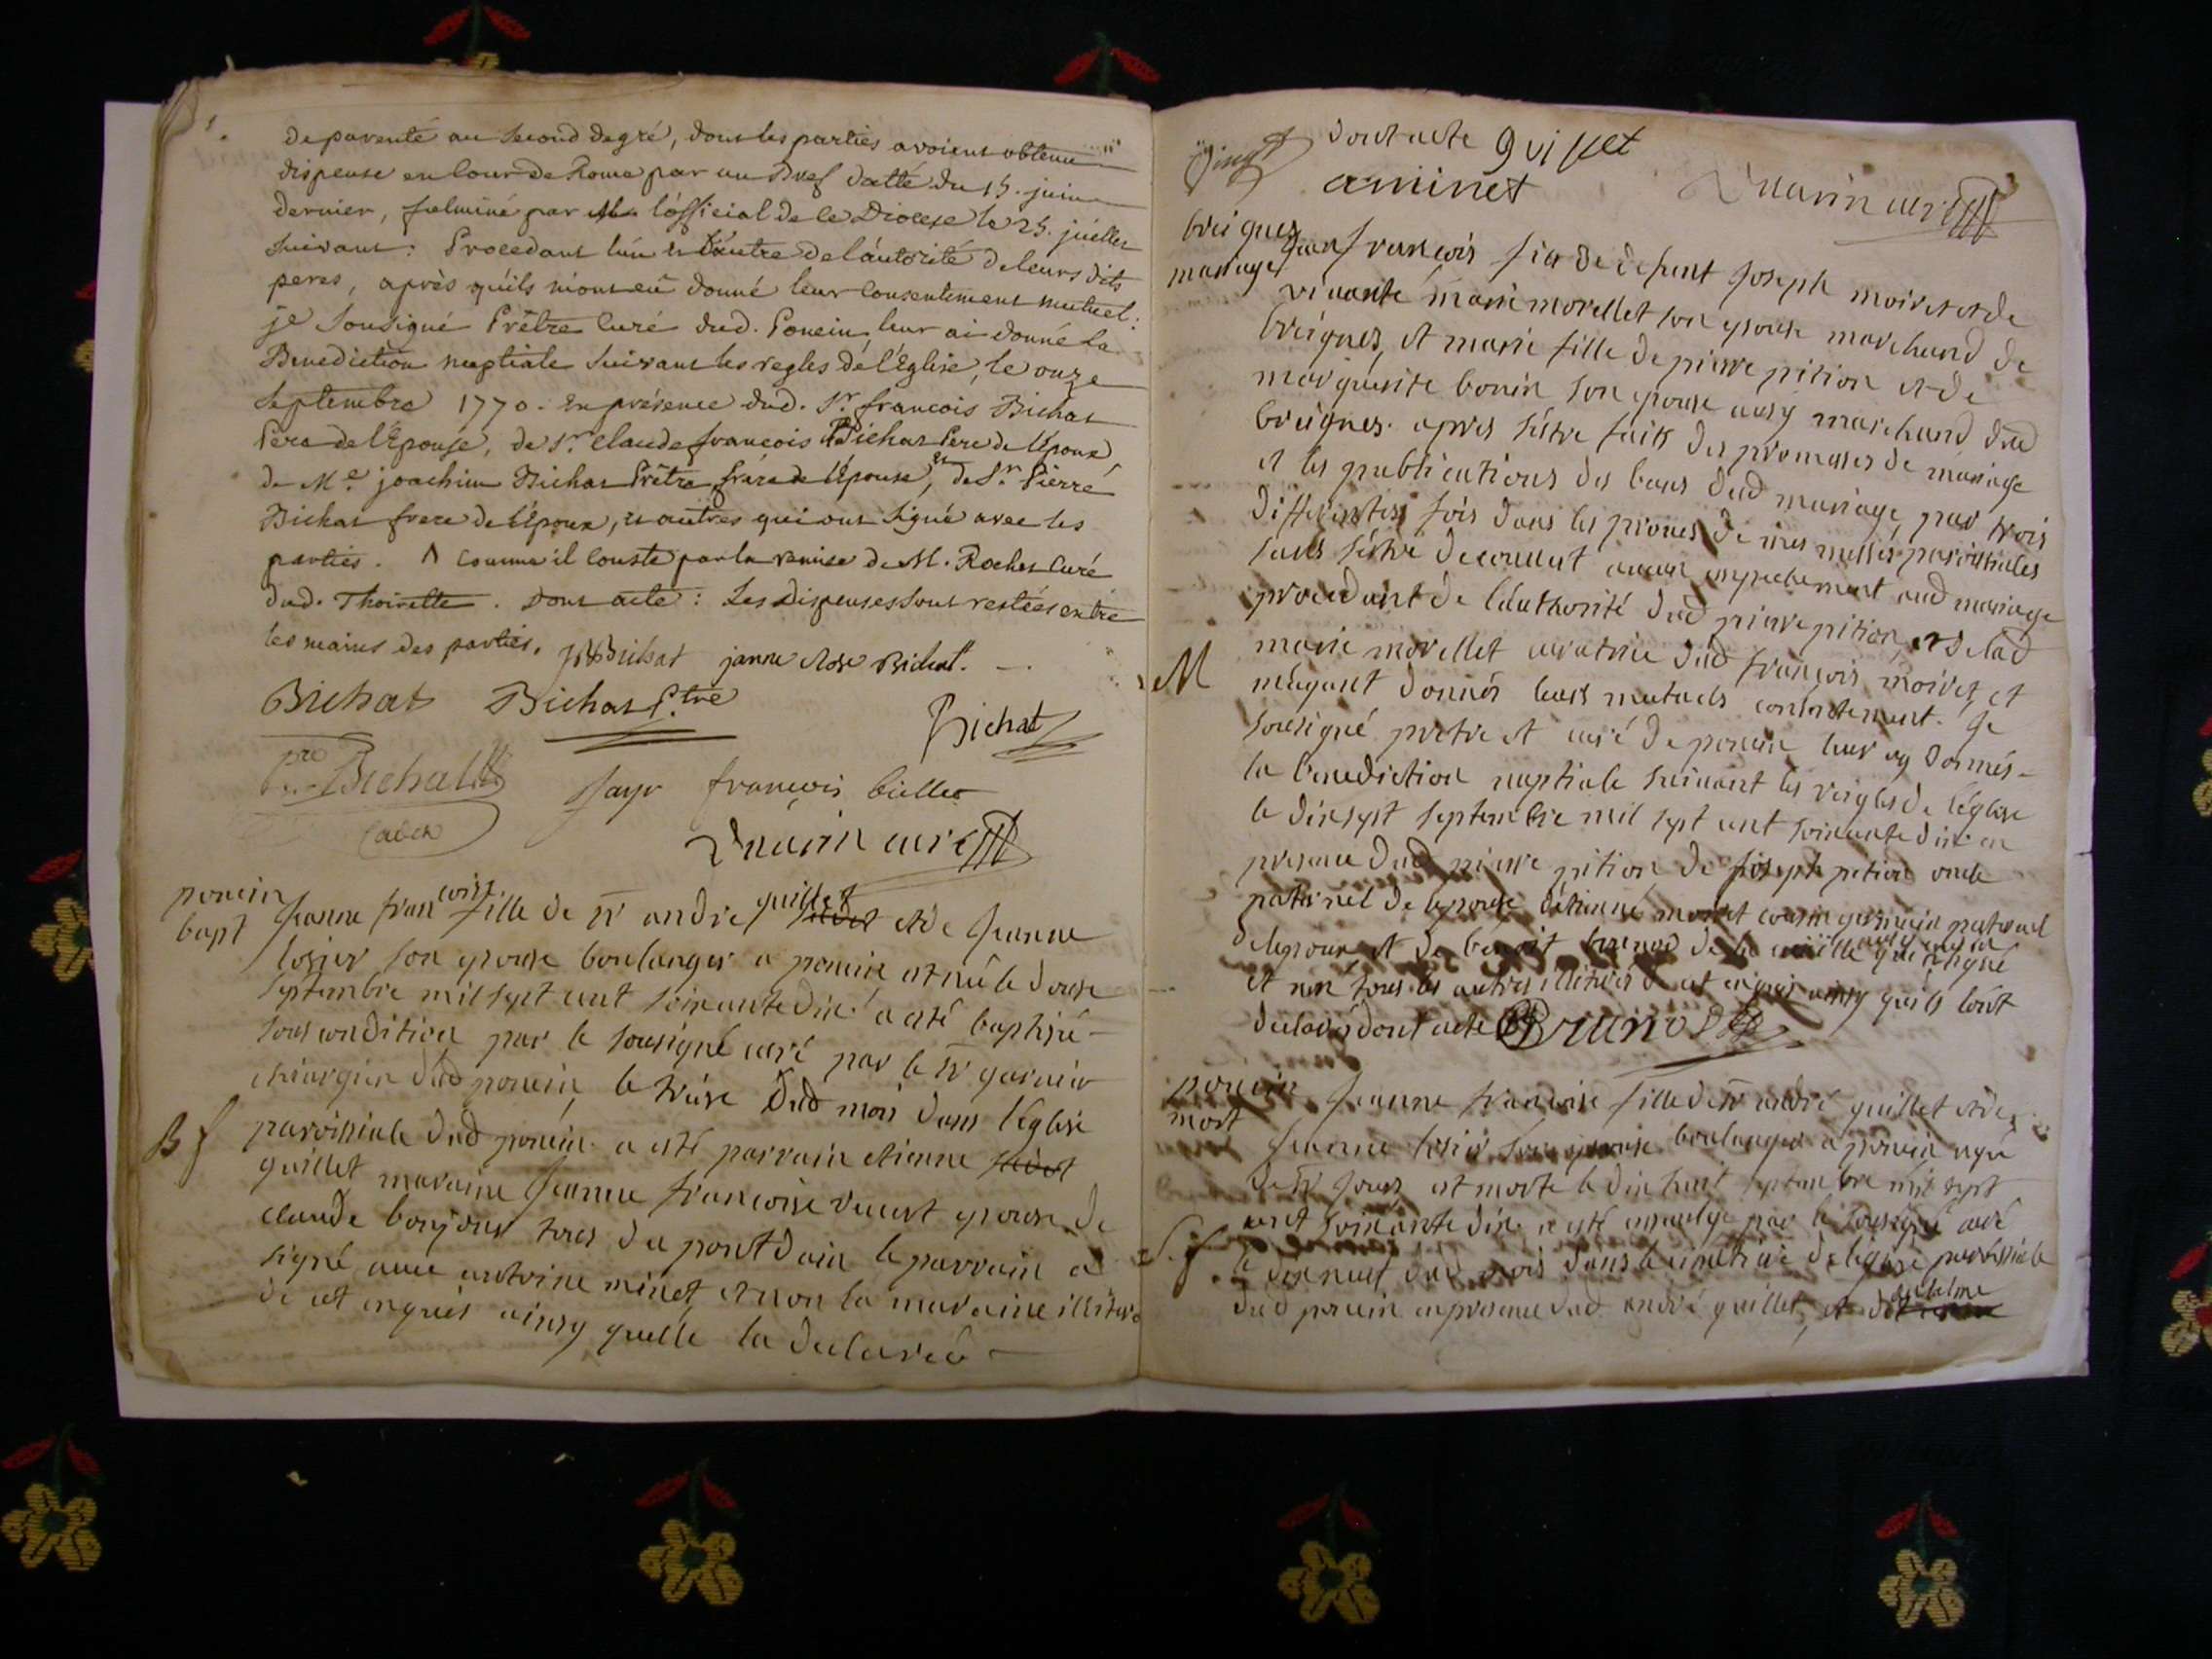 de parenté au second degré, dont les parties avoient obtenu
dispense en Cour de Rome par un Bref datté du 15. juin
dernier, fulminé par l'official de ce Diocese le 25. juillet
suivant: Procedant l'un et l'autre de l'autorité de leurs dits
peres, après qu'ils m'ont eû donné leur consentement mutuel:
je sousigné Prêtre Curé dud. Poncin, leur ai donné la
Benediction nuptiale suivant les regles de l'Eglise, le onze
septembre 1770. en présence dud. Sr. françois Bichat
Pere de l'Epouse, de Sr. claude françois Bichat Pere de l'Epoux,
de Me. joachim Bichat Prêtre frere de l'Epouse, et de Sr. Pierre
Bichat frere de l'Epoux, et autres qui ont signé avec les
parties. Comme il conste par la remise de M. Rochet Curé
dud. Thoirette. Dont acte: Les dispenses sont restées entre
les mains des parties. Bichat janne Rose Bichat
Bichat Bichat Ptre
Bichat
Bichat
Jayr françois
curé
poncin
bapt Jeanne francoise fille de sr andre quillet et de Jeanne
losier son epouse boulanger a poncin est né le douse
septembre mil sept cent soixante dix a esté baptisé
sous condition par le sousigné curé par le sr garnier
chirurgien dud poncin le treise dud mois dans l'eglise
B f paroissiale dud poncin a esté parrain etienne
quillet maraine Jeanne francoise epouse de
claude bonjour tous du pont dain le parrain a
signé avec antoine minet et non la maraine illitere
de cet enquis ainsy quelle la declaré
dont acte quillet
aminet curé
breignes
mariage Jean francois fils de defunt Joseph moiret et de
vivante marie morellet son epouse marchand de
breignes, et marie fille de pierre pition et de
marguerite bonin son epouse ausy marchand dud
breignes. apres sestre faits des promesses de mariage
et les publications des bans dud mariage, par trois
differentes fois dans les prones de mes messes paroissiales
sans sestre decouvert aucun empechement aud mariage
procedant de lauthorité dud pierre pition, et de lad
M marie morellet curatrice dud francois moiret, et
mayant donnés leurs mutuels consentement. Je
sousigné pretre et curé de poncin leur ay donnés
la benediction nuptiale suivant les reigles de l'eglise
le dixsept septembre mil sept cent soixante dix en
presence dud pierre pition de Joseph pition oncle
paternel de lepouse detienne moiret cousin germain paternel
de lepoux et de benoit qui a signé
et non tous les autres illiteres de cet enquis ainsy quils lont
declaré dont acte
poncin
mort Jeanne francoise fille de sr andré quillet et de
Jeanne losier son epouse boulanger a poncin agé
de jours est morte le dix huit septembre mil sept
cent soixante dix a esté par le sousigné curé
S. f. le dixneuf dud mois dans le cimetiere de leglise paroissiale
dud poncin en presence dud andré quillet, et